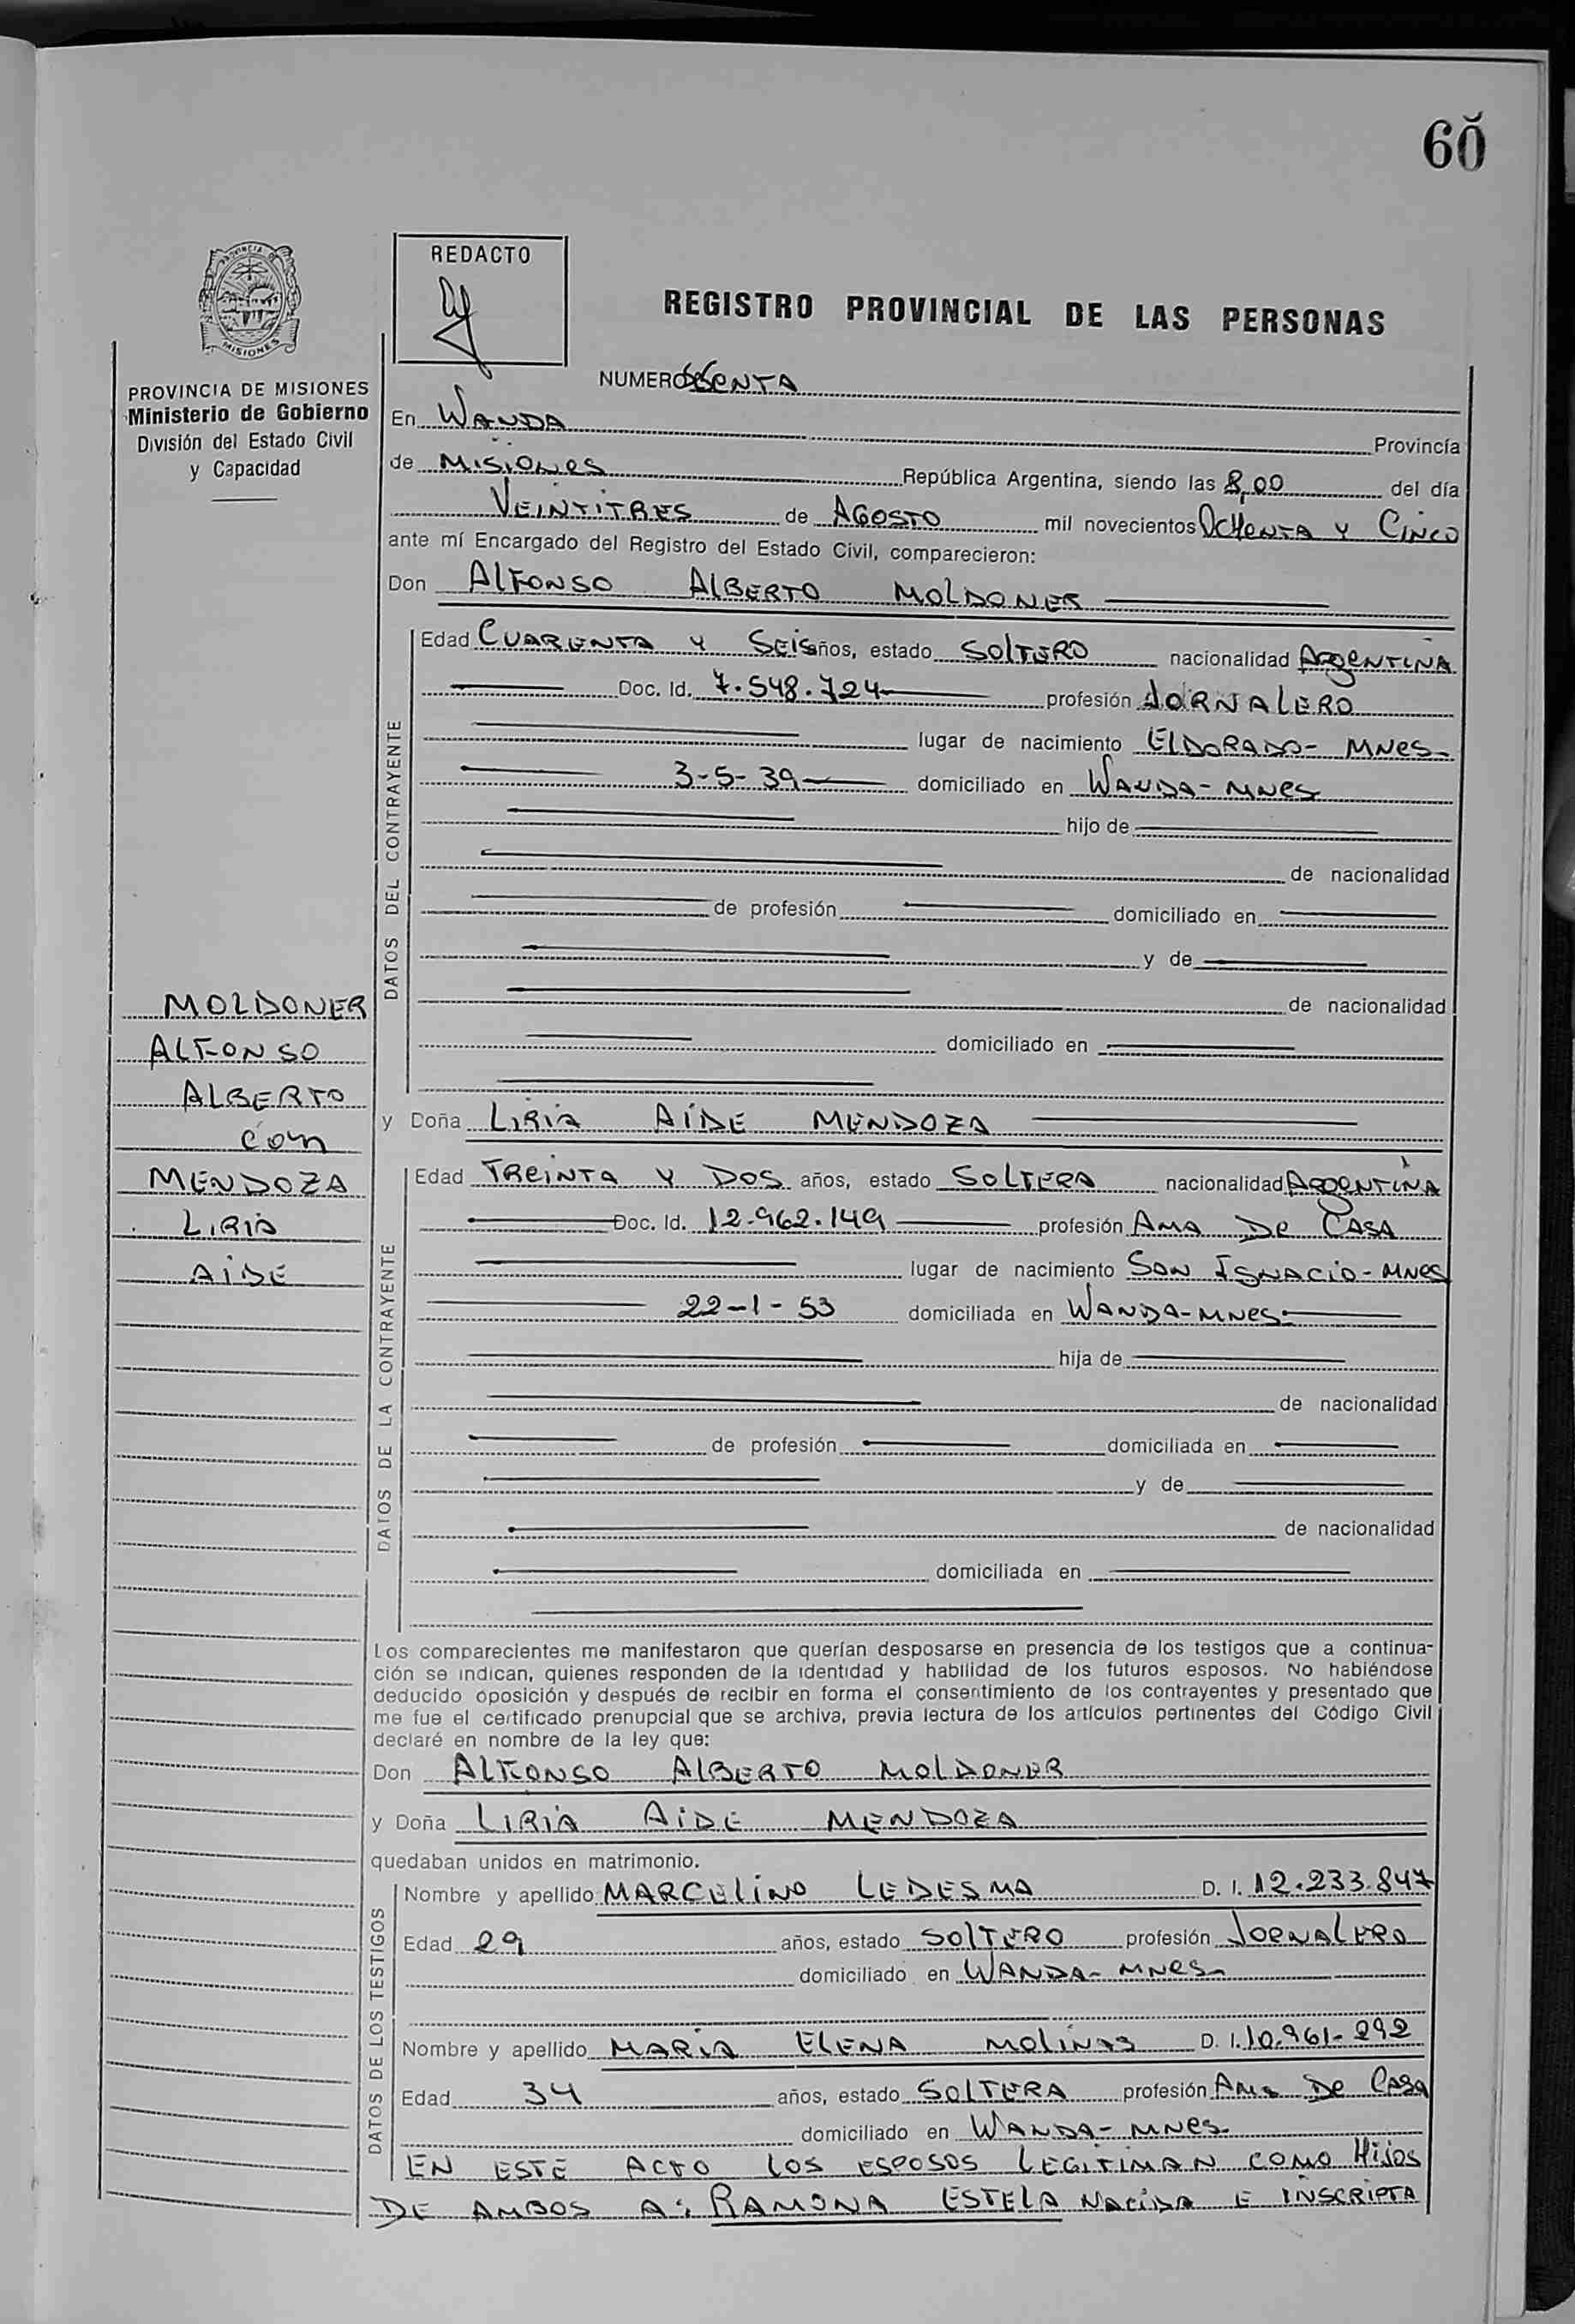 60
REDACTO
REGISTRO PROVINCIAL DE LAS PERSONAS
PROVINCIA DE MISIONES
Ministerio de Gobierno
División del Estado Civil
y Capacidad
NUMERO SESENTA
En WANDA Provincia
de MISIONES República Argentina, siendo las 8,00 del día
VEINTITRES de AGOSTO mil novecientos OCHENTA Y CINCO
ante mí Encargado del Registro del Estado Civil, comparecieron:
Don ALFONSO ALBERTO MOLDONER
DATOS DEL CONTRAYENTE
Edad CUARENTA Y SEIS años, estado SOLTERO nacionalidad ARGENTINA
Doc. Id. 7.548.724 profesión JORNALERO
lugar de nacimiento ELDORADO - MNES
3-5-39 domiciliado en WANDA - MNES
hijo de
de nacionalidad
de profesión domiciliado en
y de
de nacionalidad
domiciliado en
MOLDONER
ALFONSO
ALBERTO
con
MENDOZA
LIRIA
AIDE
y Doña LIRIA AIDE MENDOZA
DATOS DE LA CONTRAYENTE
Edad TREINTA Y DOS años, estado SOLTERA nacionalidad ARGENTINA
Doc. Id. 12.962.149 profesión AMA DE CASA
lugar de nacimiento SAN IGNACIO - MNES
22-1-53 domiciliada en WANDA - MNES
hija de
de nacionalidad
de profesión domiciliada en
y de
de nacionalidad
domiciliada en
Los comparecientes me manifestaron que querían desposarse en presencia de los testigos que a continua-
ción se indican, quienes responden de la identidad y habilidad de los futuros esposos. No habiéndose
deducido oposición y después de recibir en forma el consentimiento de los contrayentes y presentado que
me fue el certificado prenupcial que se archiva, previa lectura de los artículos pertinentes del Código Civil
declaré en nombre de la ley que:
Don ALFONSO ALBERTO MOLDONER
y Doña LIRIA AIDE MENDOZA
quedaban unidos en matrimonio.
DATOS DE LOS TESTIGOS
Nombre y apellido MARCELINO LEDESMA D. I. 12.233.847
Edad 29 años, estado SOLTERO profesión JORNALERO
domiciliado en WANDA - MNES
Nombre y apellido MARIA ELENA MOLINAS D. I. 10.961-292
Edad 34 años, estado SOLTERA profesión AMA DE CASA
domiciliado en WANDA - MNES
EN ESTE ACTO LOS ESPOSOS LEGITIMAN COMO HIJOS
DE AMBOS A: RAMONA ESTELA NACIDA E INSCRIPTA